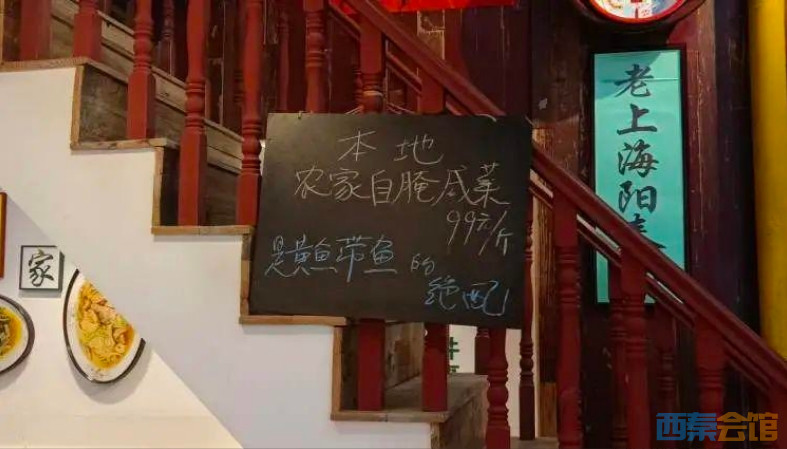 本地
农家自腌咸菜
99元/斤
是黄鱼带鱼的
绝配
老上海阳春
家
西秦会馆